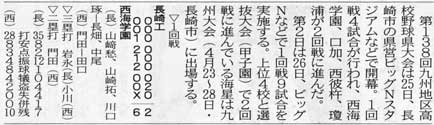 第138回九州地区高
校野球県大会は25日、長
崎市の県営ビッグNスタ
ジアムなどで開幕。1回
戦4試合が行われ、西海
学園、口加、西彼杵、瓊
浦が2回戦に進んだ。
第2日は26日、ビッグ
Nなどで1回戦9試合を
実施する。上位4校と選
抜大会(甲子園)で2回
戦に進んでいる海星は九
州大会(4月23〜28日・
長崎市)に出場する。
▽1回戦
長崎工 000 000 020 2
西海学園 001 212 00X 6
(長)山崎悠、山崎拓、川口
琢―長畑、中尾
(西)門田―田口
▽三塁打 岩永(長)小川(西)
▽二塁打 門田(西)
打安点振球犠盗失併残
(長)
(西)